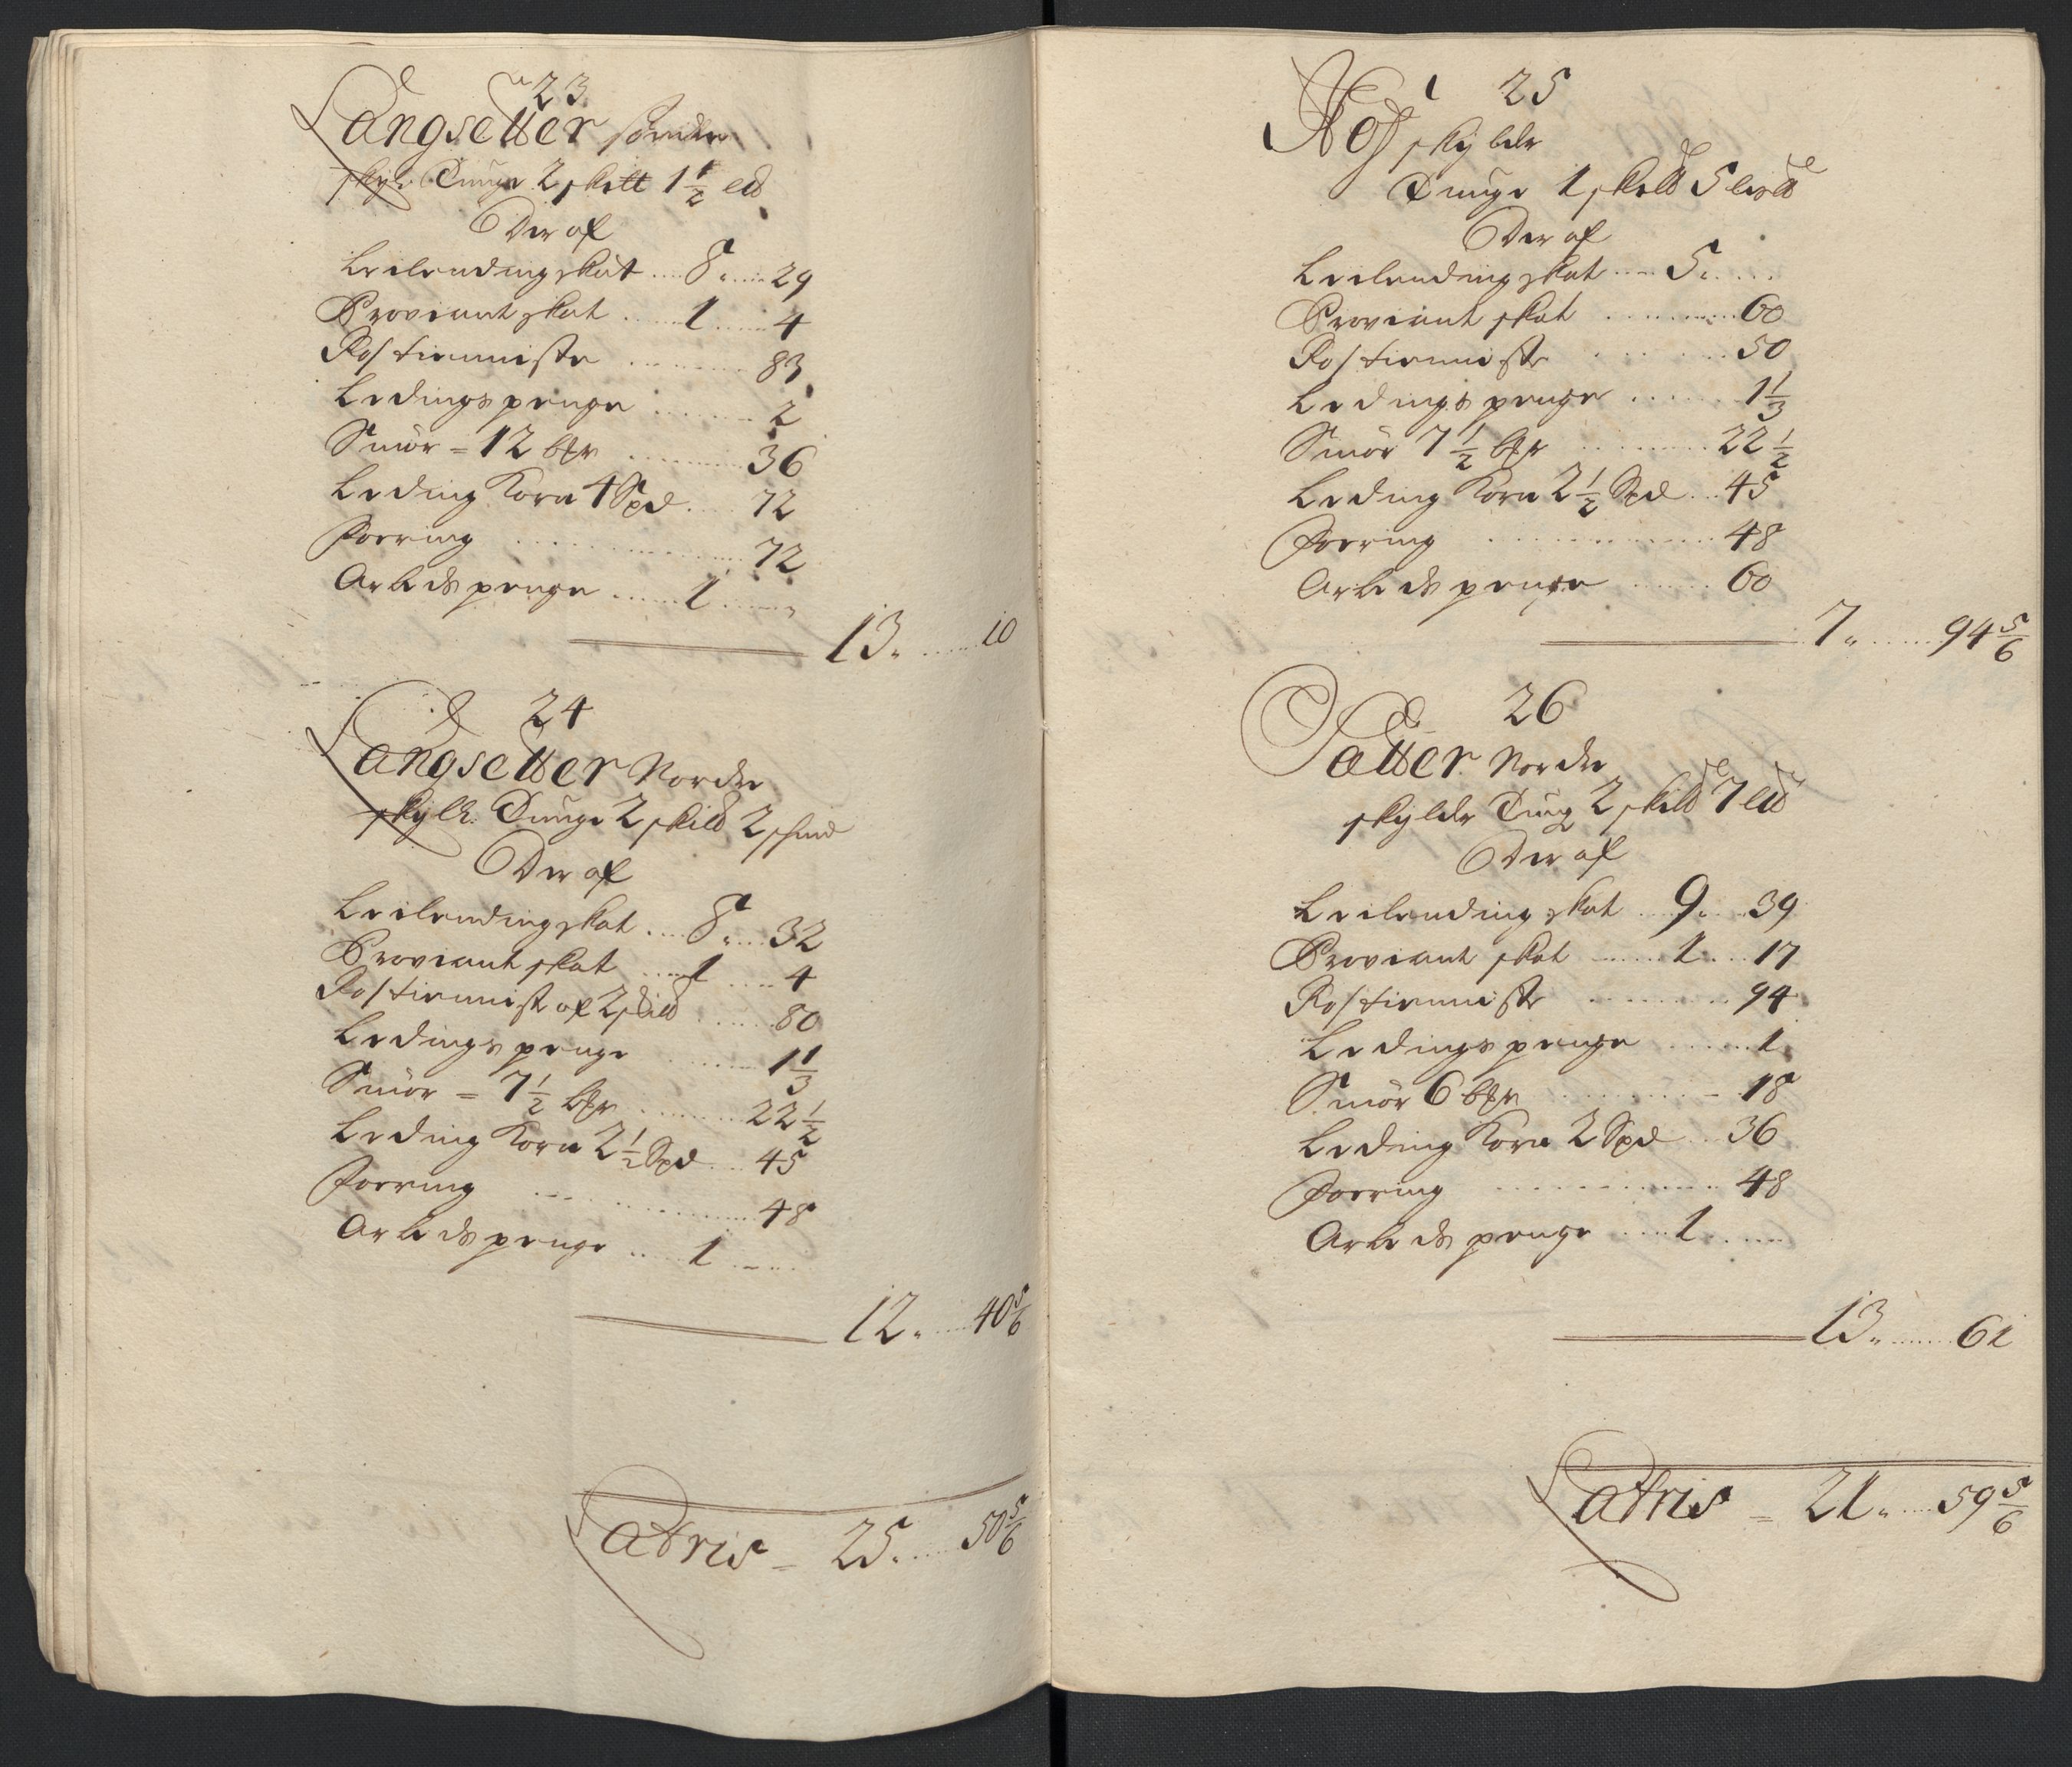 23
Langsetter söndre
skyl. Tunge 2 skill 1 1/2 ld
Der af
Leilending skat .... 8 " .... 29
Proviant skat ...... 1 ..... 4
Ros tienniste ........ 83
Ledings penge ....... 2
Smör = 12 bpr ........ 36
Leding Korn 4 Spd .. 72
Foering ............ 72
Arbeds penge ..... 1 ..... "
13 " ..... 10
24
Langsetter Nordre
skyld. Tunge 2 skild 2
Der af
Leilending skat .... 8 " ... 32
Proviant skat .... 1 .... 4
Ros tienniste af 2 skild ..... 80
Ledings penge ...... 1 1/3
Smör = 7 1/2 bpr ....... 22 1/2
Leding Korn 2 1/2 Spd ... 45
Foering ............ 48
Arbeds penge .... 1 .....
12 " .... 40 5/6
Latris = 25 " .... 50 5/6
25
skylder
Tunge 1 skild 5 lisld
Der af
Leilending skat .... 5 " ....
Proviant skat ......... 60
Ros tienniste ....... 50
Ledings penge ...... 1 1/3
Smör 7 1/2 bpr ........ 22 1/2
Leding Korn 2 1/2 Spd .. 45
Foering ............ 48
Arbeds penge ...... 60
7 " ...... 94 5/6
26
Sætter Nordre
skylder Tung 2 skild 7 ld
Der af
Leilending skat ... 9 " ... 39
Proviant skat ...... 1 ... 17
Ros tienniste ........ 94
Ledings penge ..... 1
Smör 6 bpr ......... 18
Leding Korn 2 Spd .. 36
Foering ........... 48
Arbeds penge .... 1 .....
13 " ...... 61
Latris = 21 " .... 59 5/6